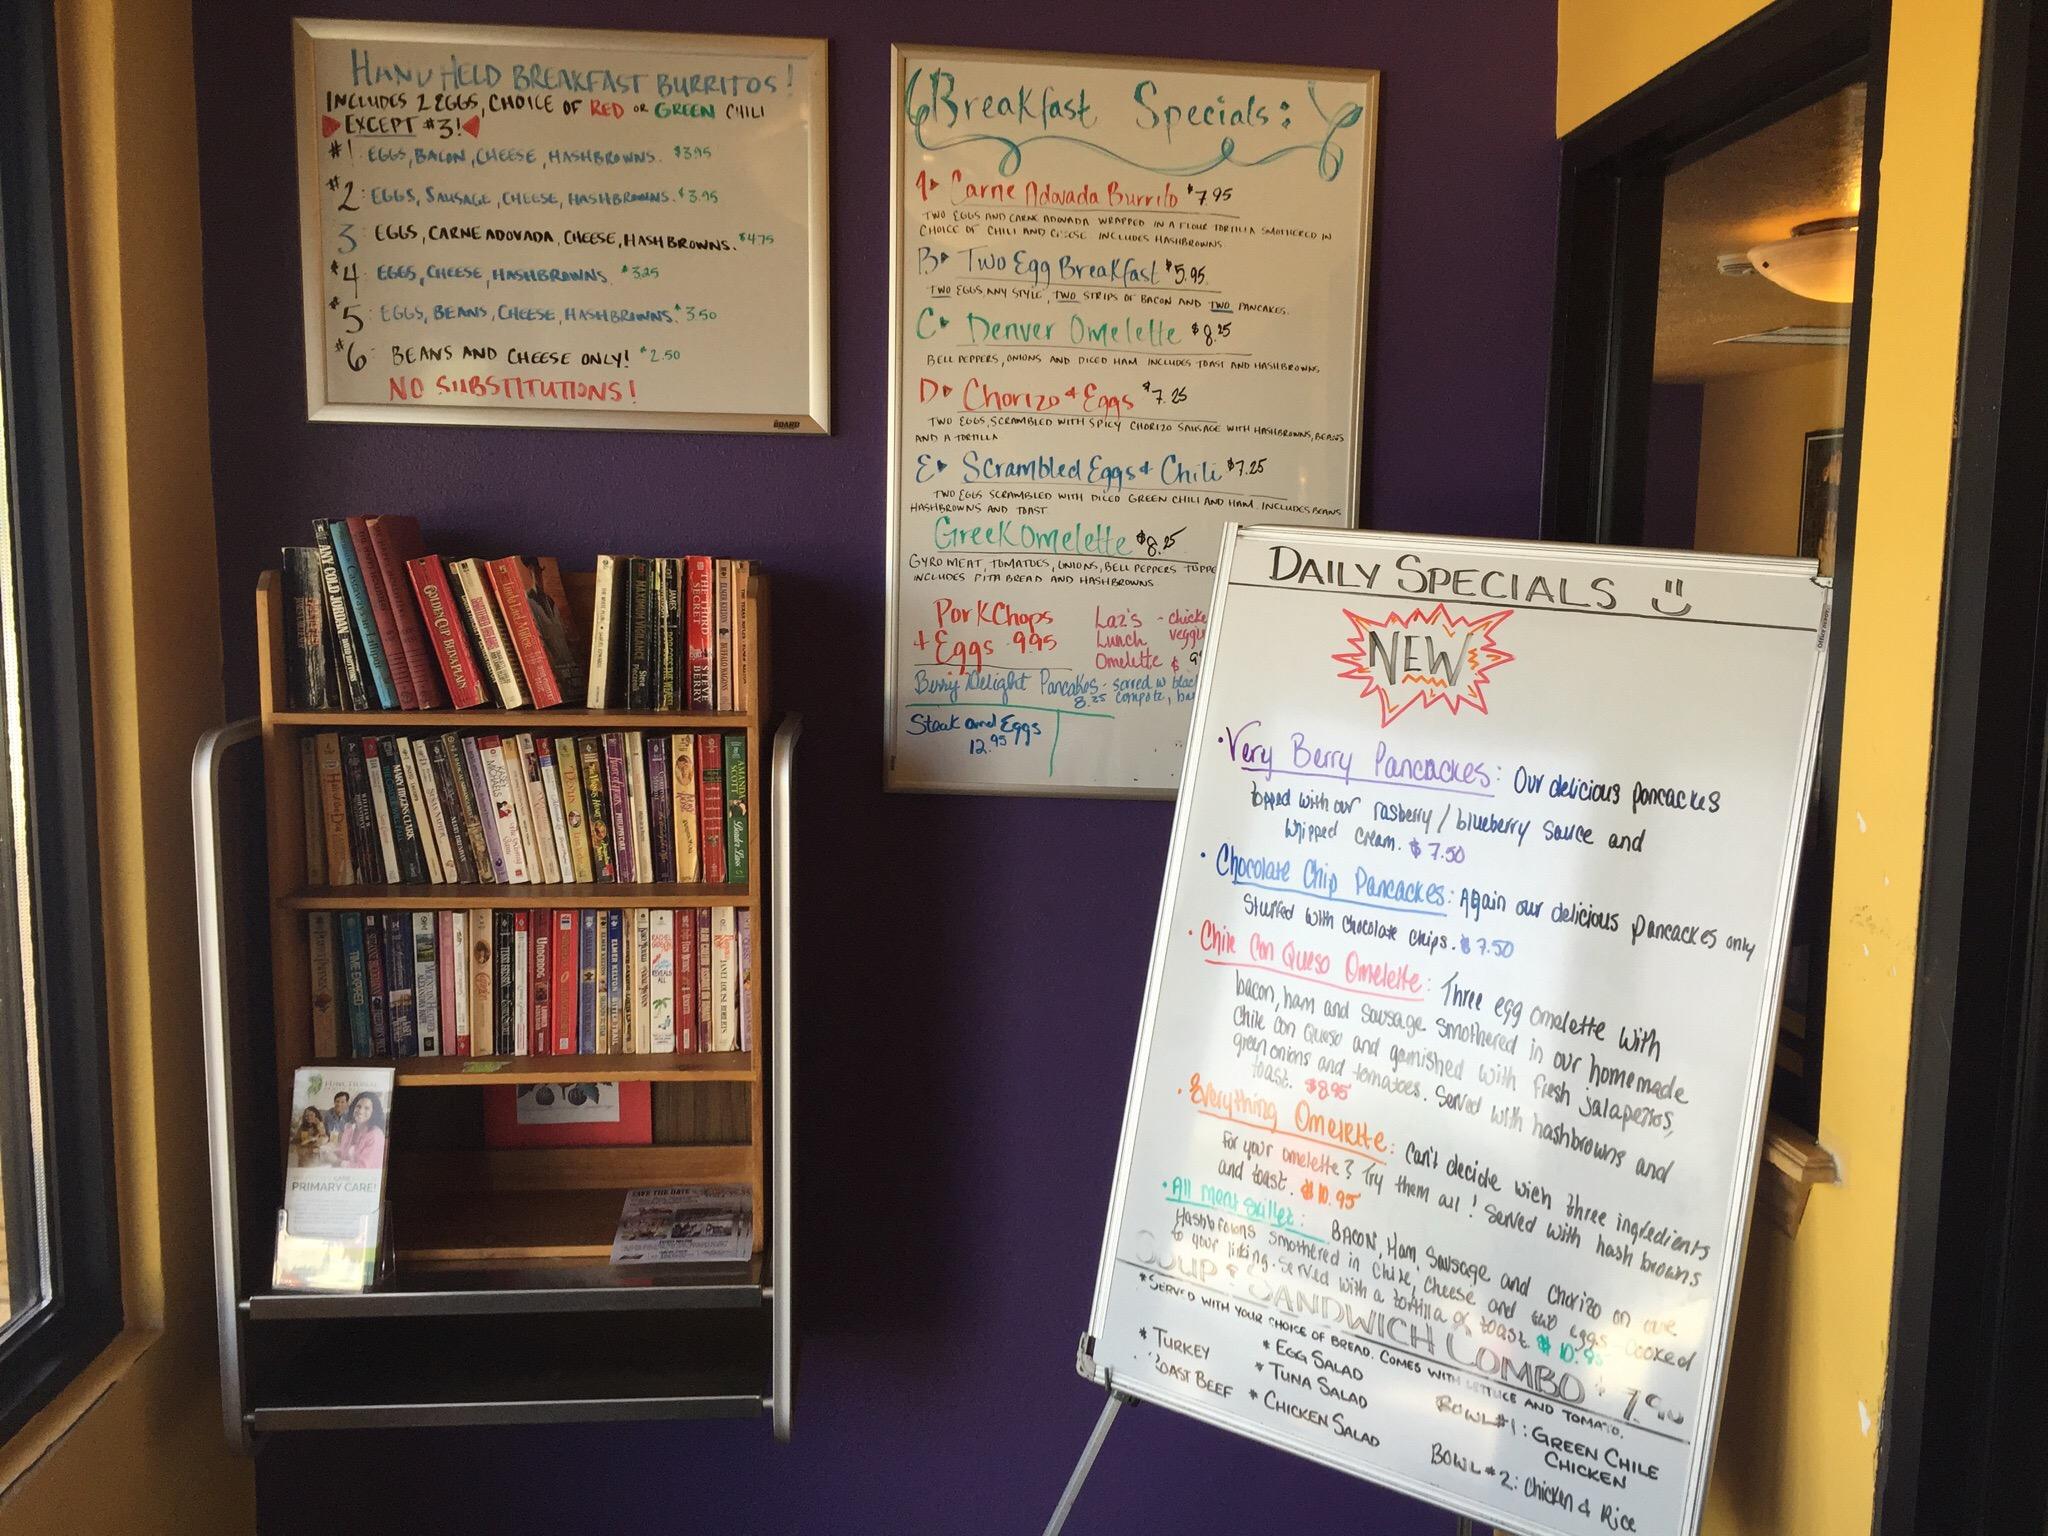 HAND HELD BREAKFAST BURRITOS!
INCLUDES 2 EGGS, CHOICE OF RED OR GREEN CHILI
EXCEPT #3!
#1 EGGS, BACON, CHEESE, HASHBROWNS. $3.95
#2: EGGS, SAUSAGE, CHEESE, HASHBROWNS. $3.95
3: EGGS, CARNE ADOVADA, CHEESE, HASHBROWNS. $4.75
#4: EGGS, CHEESE, HASHBROWNS. $3.25
#5: EGGS, BEANS, CHEESE, HASHBROWNS. $3.50
#6: BEANS AND CHEESE ONLY! $2.50
NO SUBSTITUTIONS!
BOARD
Breakfast Specials:
A Carne Adovada Burrito $7.95
TWO EGGS AND CARNE ADOVADA WRAPPED IN A FLOUR TORTILLA SMOTHERED IN
CHOICE OF CHILI AND CHEESE INCLUDES HASHBROWNS.
B Two Egg Breakfast $5.95
TWO EGGS ANY STYLE, TWO STRIPS OF BACON AND TWO PANCAKES.
C Denver Omelette $8.25
BELL PEPPERS, ONIONS AND DICED HAM INCLUDES TOAST AND HASHBROWNS
D Chorizo + Eggs $7.25
TWO EGGS, SCRAMBLED WITH SPICY CHORIZO SAUSAGE WITH HASHBROWNS, BEANS
AND A TORTILLA
E Scrambled Eggs + Chili $7.25
TWO EGGS SCRAMBLED WITH DICED GREEN CHILI AND HAM. INCLUDES BEANS
HASHBROWNS AND TOAST
Greek Omelette $8.25
GYRO MEAT, TOMATOES, ONIONS, BELL PEPPERS TOPPE
INCLUDES PITA BREAD AND HASHBROWNS
Pork Chops
+ Eggs 9.95
Laz's - chicke
Lunch veggi
Omelette $9
Berry Delight Pancakes - served w blac
8.25 compote, ba
Steak and Eggs
12.95
DAILY SPECIALS
NEW
• Very Berry Pancackes: Our delicious pancackes
topped with our rasberry / blueberry sauce and
whipped cream. $7.50
• Chocolate Chip Pancackes: Again our delicious pancackes only
stuffed with chocolate chips. $7.50
• Chile Con Queso Omelette: Three egg omelette with
bacon, ham and sausage smothered in our homemade
chile con queso and garnished with fresh jalapeños,
green onions and tomatoes. Served with hashbrowns and
toast. $8.95
• Everything Omelette: Can't decide wich three ingredients
for your omelette? Try them all! Served with hash browns
and toast. $10.95
• All meat skillet: BACON, Ham, Sausage and Chorizo on our
Hashbrowns smothered in Chile, Cheese and two eggs cooked
to your liking. Served with a tortilla or toast. $10.95
SOUP & SANDWICH COMBO $7.90
* SERVED WITH YOUR CHOICE OF BREAD. COMES WITH LETTUCE AND TOMATO.
* TURKEY
* EGG SALAD
ROAST BEEF
* TUNA SALAD
* CHICKEN SALAD
BOWL #1: GREEN CHILE
CHICKEN
BOWL #2: Chicken & Rice
ANY COLD JORDAN
GOLDEN CUP BELVA PLAIN
MAXIMUM VIGILANCE
THE THIRD SECRET
STEVE BERRY
MARY HIGGINS CLARK
AMANDA SCOTT
UNDERDOG
ELMER KELTON
PRIMARY CARE!
SAVE THE DATE